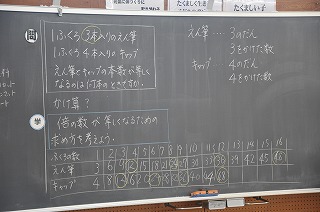 たくましい子
問
1ふくろ3本入りのえん筆
1ふくろ4本入りのキャップ
えん筆とキャップの本数が等しく
なるのは何本のときですか。
かけ算?
学
倍の数が等しくなるための
求め方を考えよう。
えん筆…3のだん
3をかけた数
キャップ…4のだん
4をかけた数
ふくろの数 1 2 3 4 5 6 7 8 9 10 11 12 13 14 15 16
えん筆 3 6 9 12 15 18 21 24 27 30 33 36 39 42 45 48
キャップ 4 8 12 16 20 24 28 32 36 40 44 48